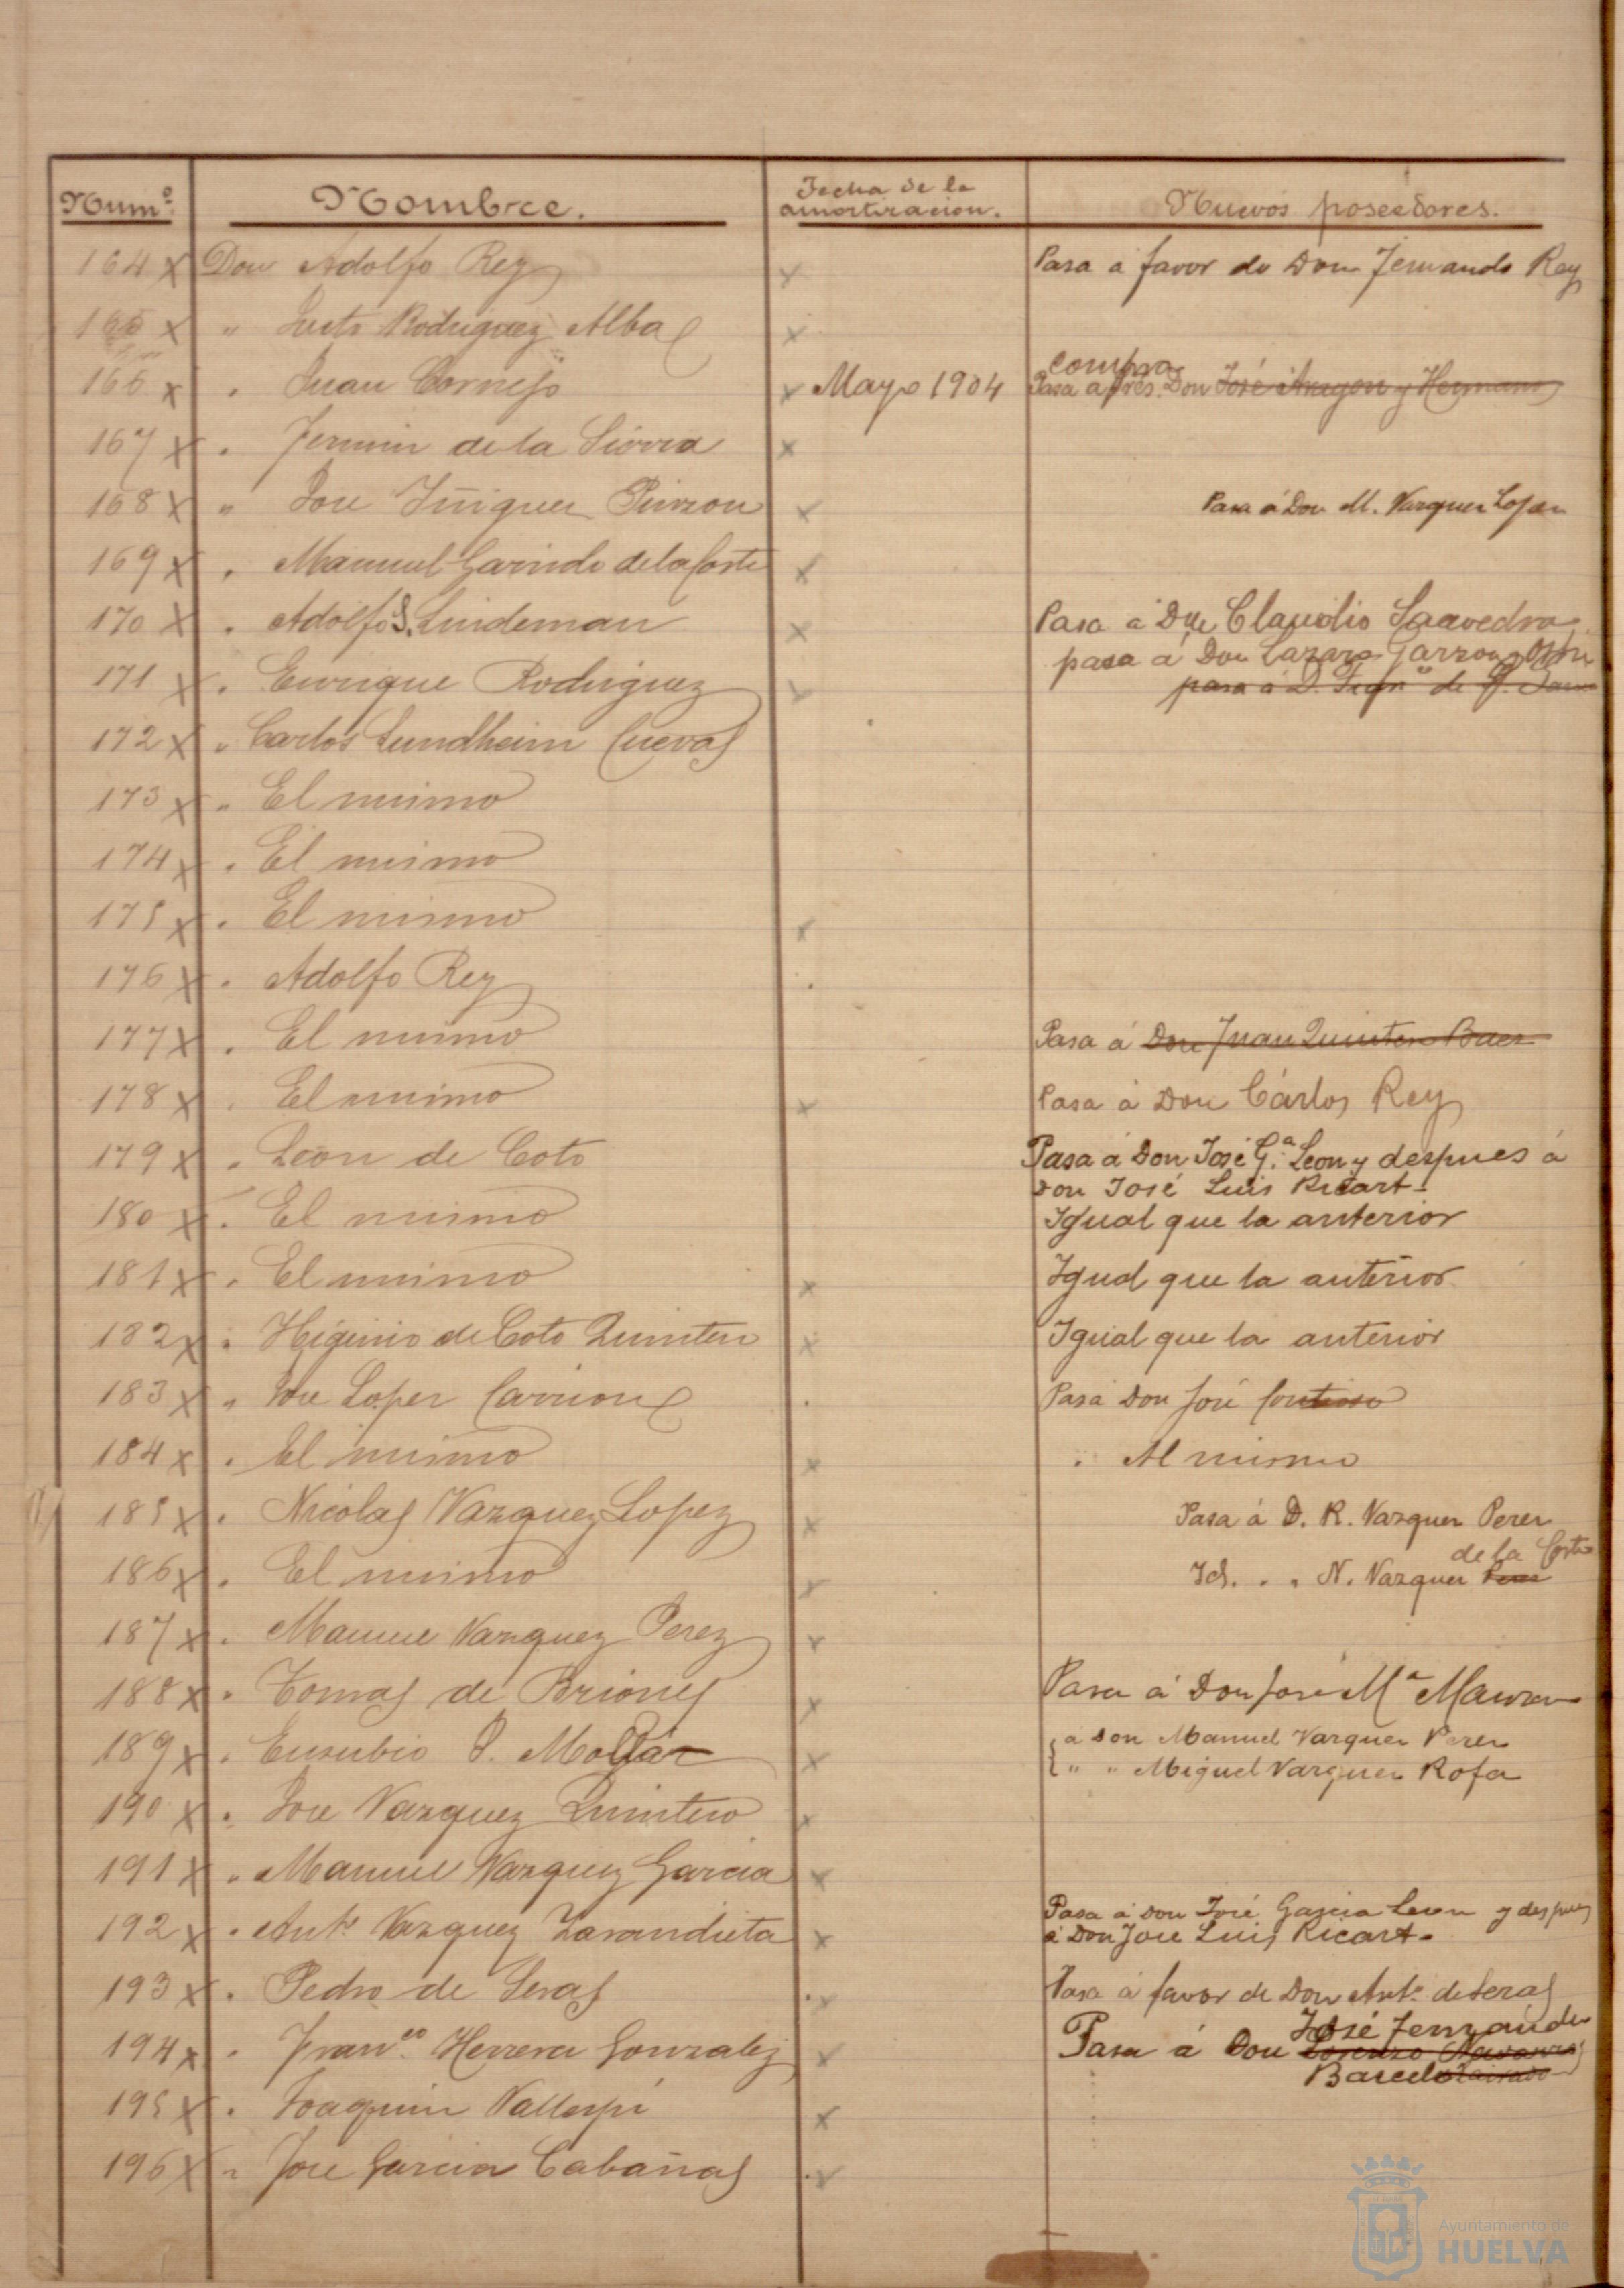 Num.º Nombre. Fecha de la amortizacion. Nuevos poseedores.
164 x Don Adolfo Rey x Pasa a favor de Don Fernando Rey
165 x " Justo Rodriguez Alba x
166 x " Juan Cornejo x Mayo 1904 compra
Pasa a pres. Don José Aragon y Hermano
167 x " Fermin de la Sierra x
168 x " Jose Iñiguez Pinzon x Pasa á Don M. Vazquez Lopez
169 x " Manuel Garrido de la Corte x
170 x " Adolfo S. Lindeman x Pasa a Don Claudio Saavedra
171 x " Enrique Rodriguez x pasa á Don Lazaro Garzon
pasa á D.
172 x " Carlos Sundheim Cuevas
173 x " El mismo
174 x " El mismo
175 x " El mismo x
176 x " Adolfo Rey
177 x " El mismo Pasa á Don Juan Quintero Baez
178 x " El mismo x Pasa á Don Cárlos Rey
179 x " Leon de Coto Pasa á Don José G.ª Leon y despues á
Don José Luis Ricart -
180 x " El mismo Igual que la anterior
181 x " El mismo x Igual que la anterior
182 x " Higinio de Coto Quintero x Igual que la anterior
183 x " Jose Lopez Carrion Pasa Don José
184 x " El mismo x " Al mismo
185 x " Nicolas Vazquez Lopez x Pasa á D. R. Vazquez Perez
186 x " El mismo x de la Corte
Id. . . N. Vazquez Perez
187 x " Manuel Vazquez Perez x
188 x " Tomas de Briones x Pasa á Don José Mª
189 x " Eusebio P. x á Don Manuel Vazquez Perez
" " Miguel Vazquez Rofa
190 x " Jose Vazquez Quintero x
191 x " Manuel Vazquez Garcia x
192 x " Antº Vazquez Zarandieta x Pasa á Don José Garcia Leon y despues
á Don Jose Luis Ricart -
193 x " Pedro de Seras x Pasa á favor de Don Antº de Seras
194 x " Franco. Herrera Gonzalez x José Fernandez
Pasa á Don Lorenzo
Barcelo
195 x " Joaquin Vallespi x
196 x " Jose Garcia Cabañas x
Ayuntamiento de
HUELVA